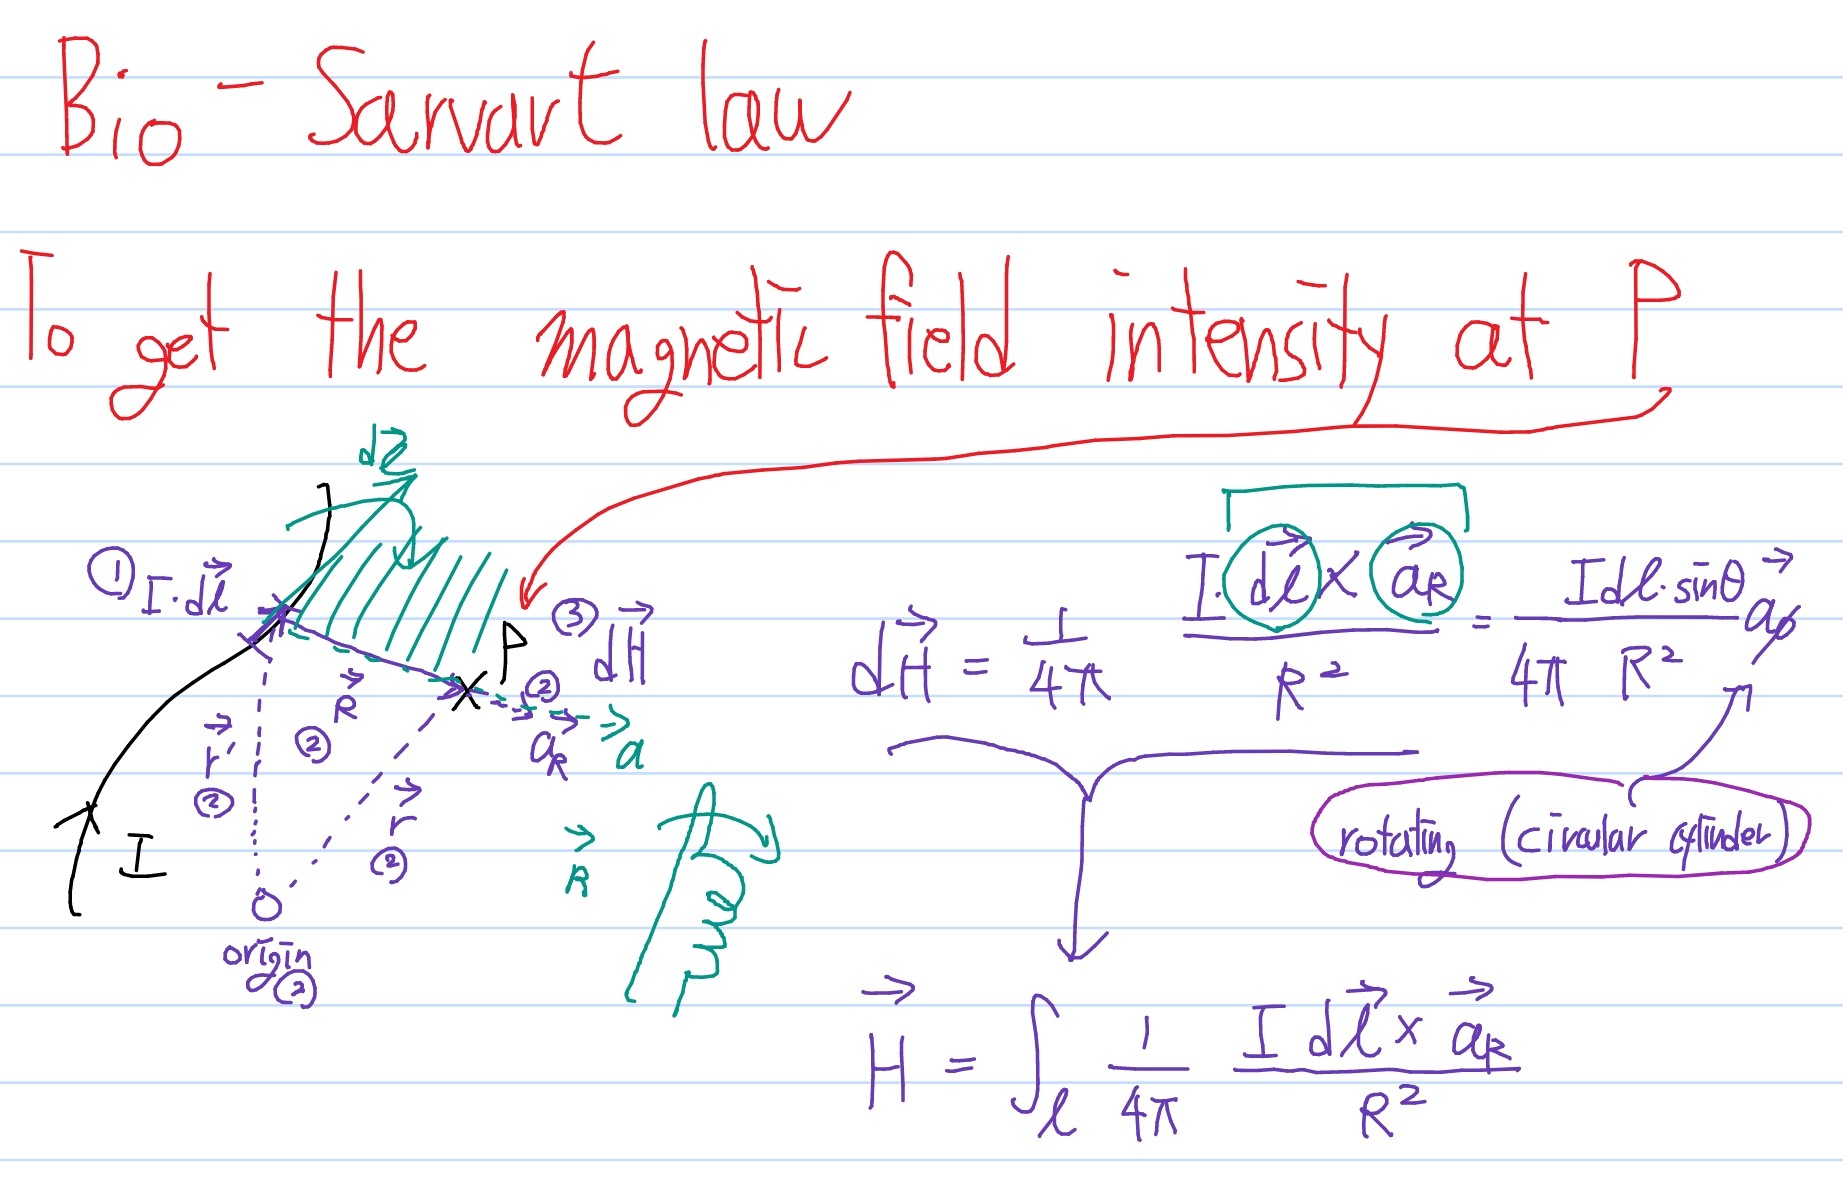 Bio - Sarvart law
To get the magnetic field intensity at P
dl⃗
① I·dl⃗
P ③ dH⃗
R⃗ ②
② a⃗_R a⃗
r⃗' ②
r⃗ ②
I
origin ②
R⃗
dH⃗ = 1/4π I·dl⃗ × a⃗_R / R² = Idl·sinθ / 4π R² a⃗_ϕ
rotating (circular cylinder)
H⃗ = ∫_l 1/4π I dl⃗ × a⃗_R / R²